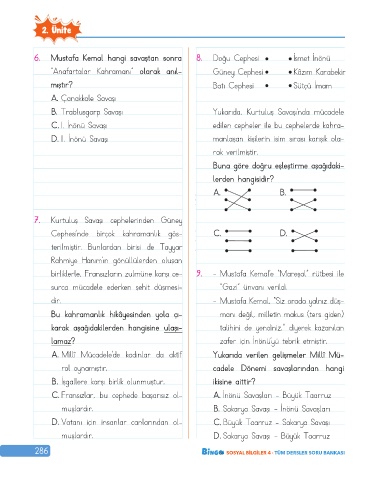 2. Ünite
6. Mustafa Kemal hangi savaştan sonra
"Anafartalar Kahramanı" olarak anıl-
mıştır?
A. Çanakkale Savaşı
B. Trablusgarp Savaşı
C. I. İnönü Savaşı
D. II. İnönü Savaşı
7. Kurtuluş Savaşı cephelerinden Güney
Cephesi'nde birçok kahramanlık gös-
terilmiştir. Bunlardan birisi de Tayyar
Rahmiye Hanım'ın gönüllülerden oluşan
birliklerle, Fransızların zulmüne karşı ce-
surca mücadele ederken şehit düşmesi-
dir.
Bu kahramanlık hikâyesinden yola çı-
karak aşağıdakilerden hangisine ulaşı-
lamaz?
A. Millî Mücadele'de kadınlar da aktif
rol oynamıştır.
B. İşgallere karşı birlik olunmuştur.
C. Fransızlar, bu cephede başarısız ol-
muşlardır.
D. Vatanı için insanlar canlarından ol-
muşlardır.
8. Doğu Cephesi • • İsmet İnönü
Güney Cephesi • • Kâzım Karabekir
Batı Cephesi • • Sütçü İmam
Yukarıda, Kurtuluş Savaşı'nda mücadele
edilen cepheler ile bu cephelerde kahra-
manlaşan kişilerin isim sırası karışık ola-
rak verilmiştir.
Buna göre doğru eşleştirme aşağıdaki-
lerden hangisidir?
A. B.
C. D.
9. - Mustafa Kemal'e "Mareşal" rütbesi ile
"Gazi" ünvanı verildi.
- Mustafa Kemal, "Siz orada yalnız düş-
manı değil, milletin makus (ters giden)
talihini de yendiniz." diyerek kazanılan
zafer için İnönü'yü tebrik etmiştir.
Yukarıda verilen gelişmeler Millî Mü-
cadele Dönemi savaşlarından hangi
ikisine aittir?
A. İnönü Savaşları - Büyük Taarruz
B. Sakarya Savaşı - İnönü Savaşları
C. Büyük Taarruz - Sakarya Savaşı
D. Sakarya Savaşı - Büyük Taarruz
286
BİNGO SOSYAL BİLGİLER 4 - TÜM DERSLER SORU BANKASI